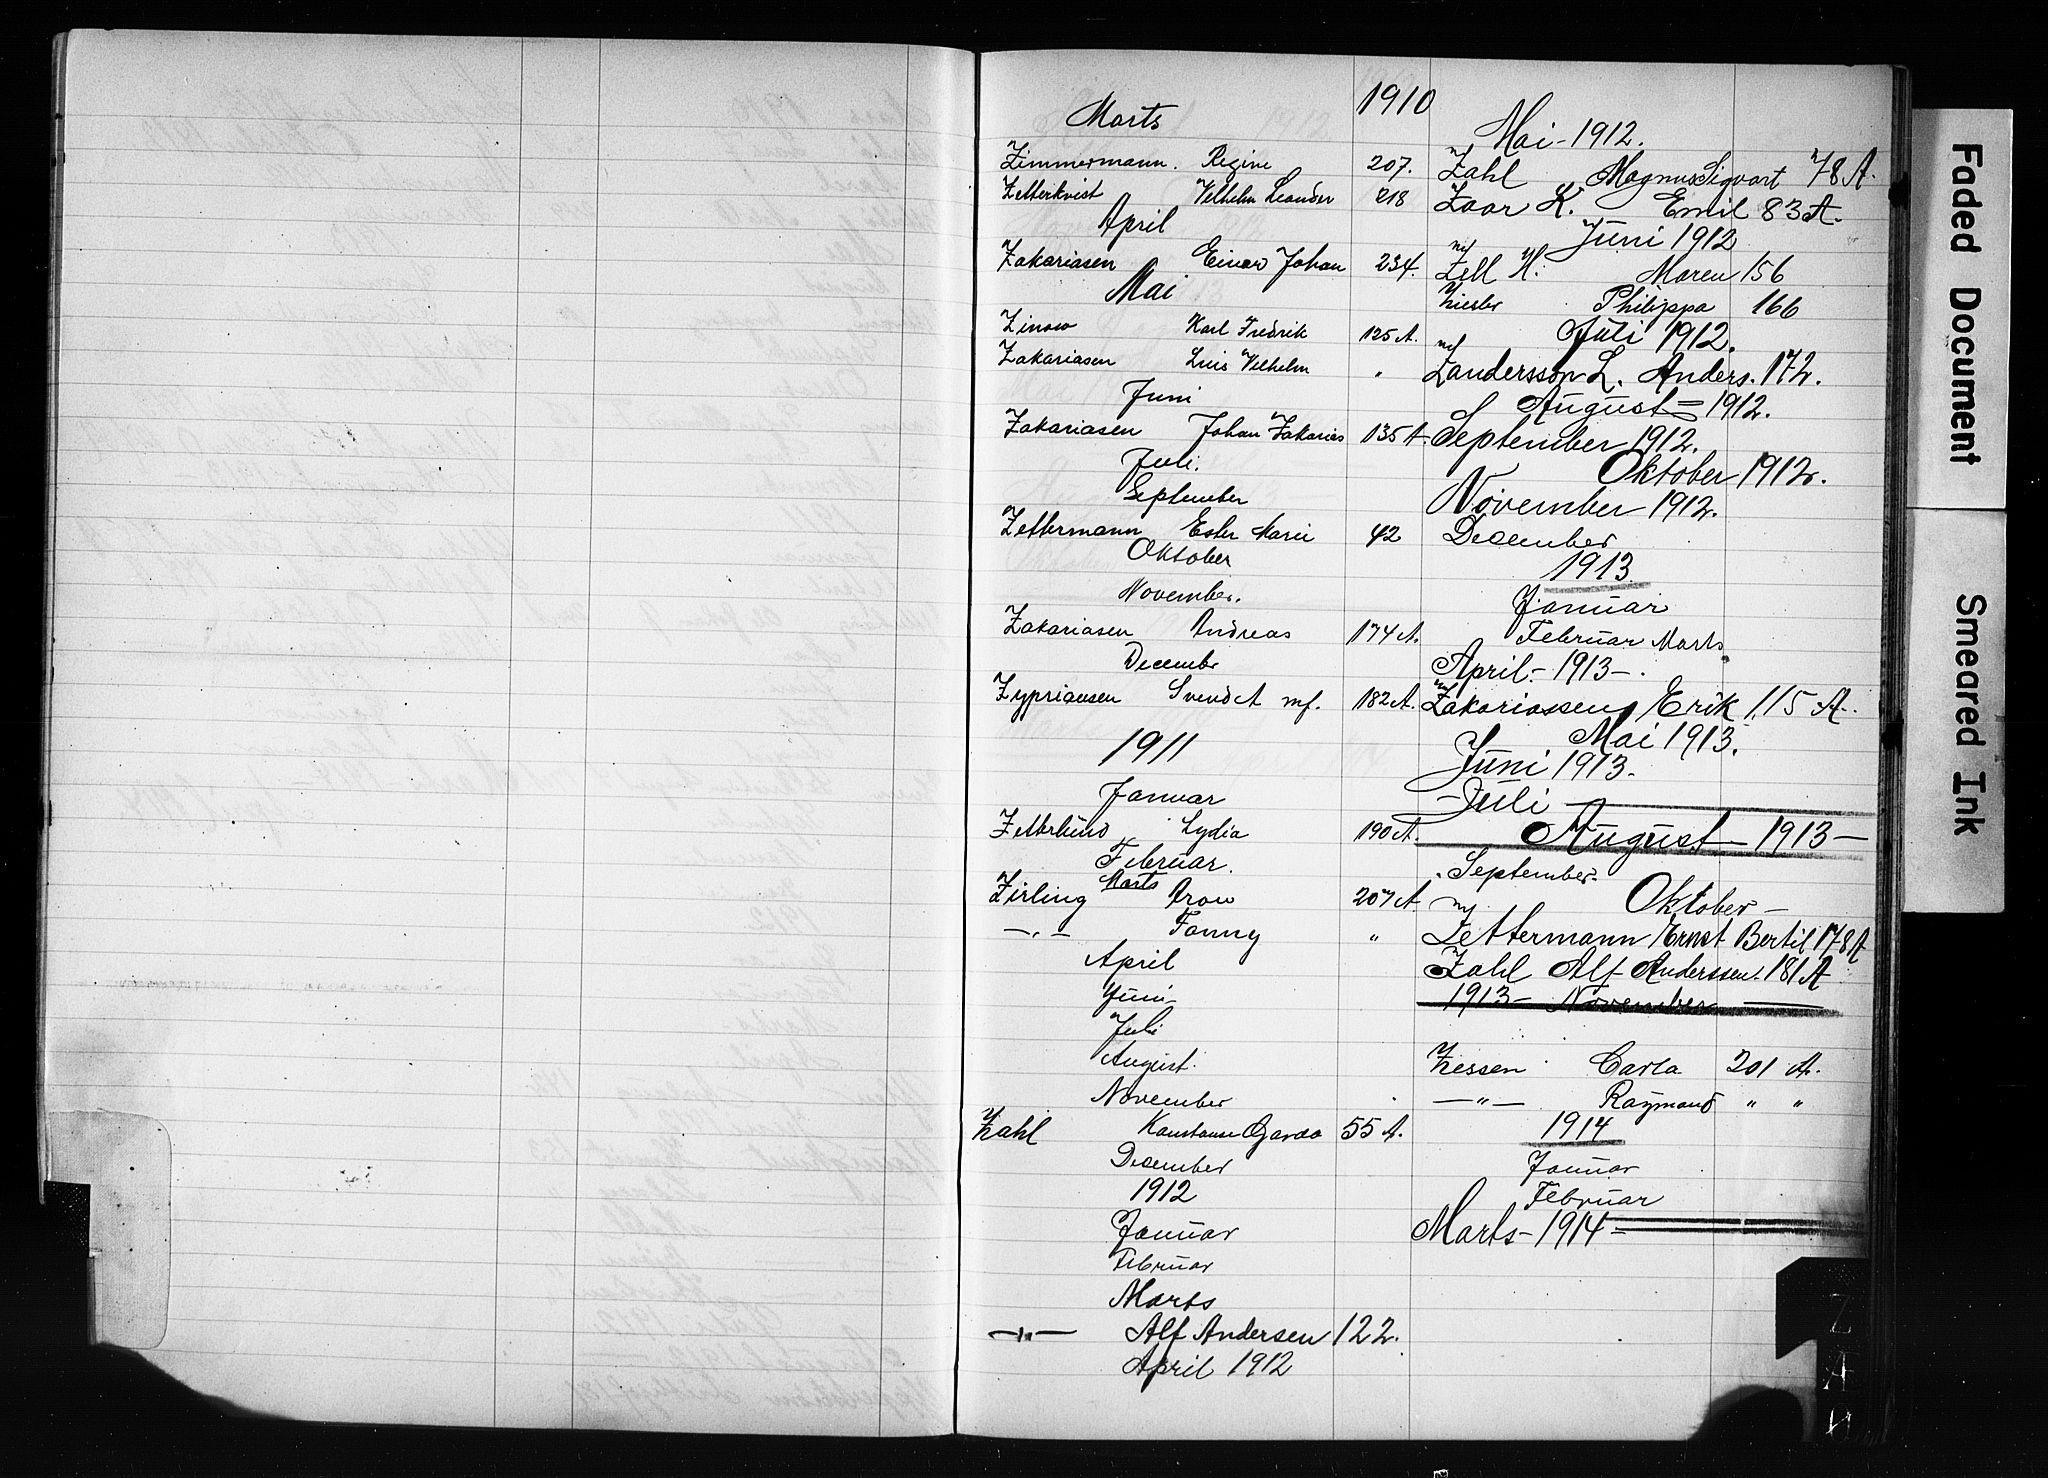 1910
Marts
Zimmermann. Regine 207.
Zetterkvist Vilhelm Leander 218
April
Zakariasen Einar Johan 234.
Mai
Zinow Karl Fredrik 125 A.
Zakariasen Luis Vilhelm "
Juni
Zakariasen Johan Zakarias 135 A.
Juli.
September
Zettermann Ester Marie 42
Oktober
November.
Zakariasen Andreas 174 A.
December
Zypriansen Svend A mf. 182 A.
1911
Januar
Zetterlund Lydia 190 A.
Februar.
Marts
Zirling Aron 207 A
—"— Fanny "
April
Juni
Juli
August.
November
Zahl Konstanse Gerda 55 A.
December
1912
Januar
Februar
Marts
—"— Alf Andersen 122.
April 1912
Mai - 1912.
Zahl Magnus Sigvart 78 A.
Zaar K. Emil 83 A.
Juni 1912
mf
Zell H. Maren 156
Ziesler Philippa 166
Juli 1912.
mf
Zandersson L. Anders. 172.
August = 1912.
September 1912.
Oktober 1912.
November 1912.
December
1913
Januar
Februar Marts
April - 1913 -
Zakariassen Erik 115 A.
Mai 1913.
Juni 1913.
- Juli
August - 1913 -
September -
Oktober -
mf
Zettermann Ernst Bertil 178 A
Zahl Alf Anderssen - 181 A
1913 - November
Ziessen Carla 201 A.
—"— Raymond " "
1914
Januar
Februar
Marts - 1914 =
Faded Document
Smeared Ink
Z